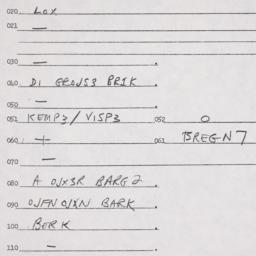 020 LOX
021 —
030 —
040 DI GROUS3 BR1K
050 —
051 KEMP3/VISP3 052 O
060 + 061 BREGN7
070 —
080 A OJX3R BARG2
090 OJFNOJXN BARK
100 BERK
110 —